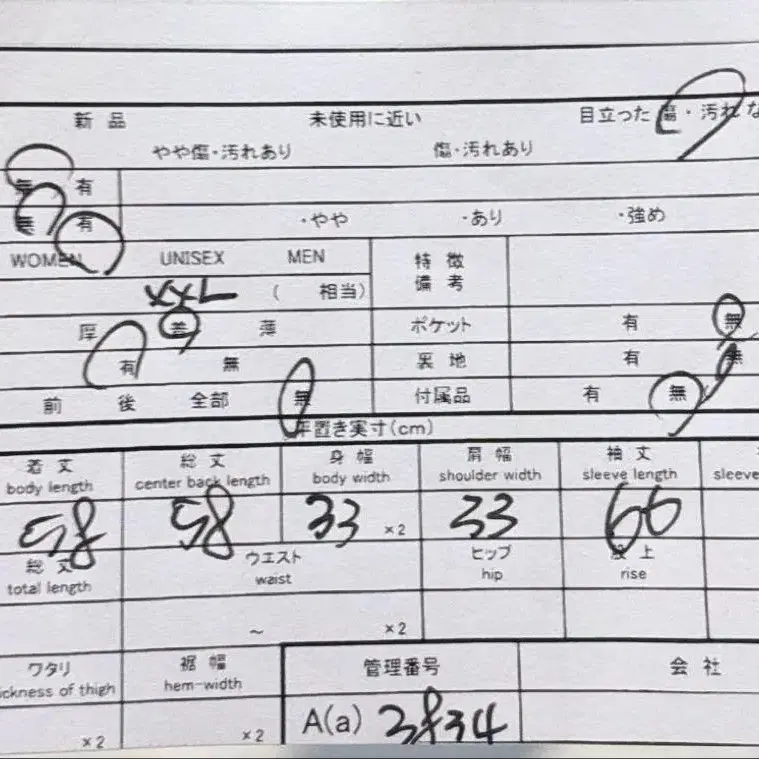 新品 未使用に近い 目立った傷・汚れな
やや傷・汚れあり 傷・汚れあり
無 有
無 有 ・やや ・あり ・強め
WOMEN UNISEX MEN 特徴
備考
XXL ( 相当)
厚 普 薄 ポケット 有 無
有 無 裏地 有 無
前 後 全部 無 付属品 有 無
平置き実寸(cm)
着丈 総丈 身幅 肩幅 袖丈
body length center back length body width shoulder width sleeve length sleeve
58 58 33 ×2 33 66
総丈 ウエスト ヒップ 股上
total length waist hip rise
~ ×2
ワタリ 裾幅 管理番号 会社
ickness of thigh hem-width
×2 ×2 A(a) 3834